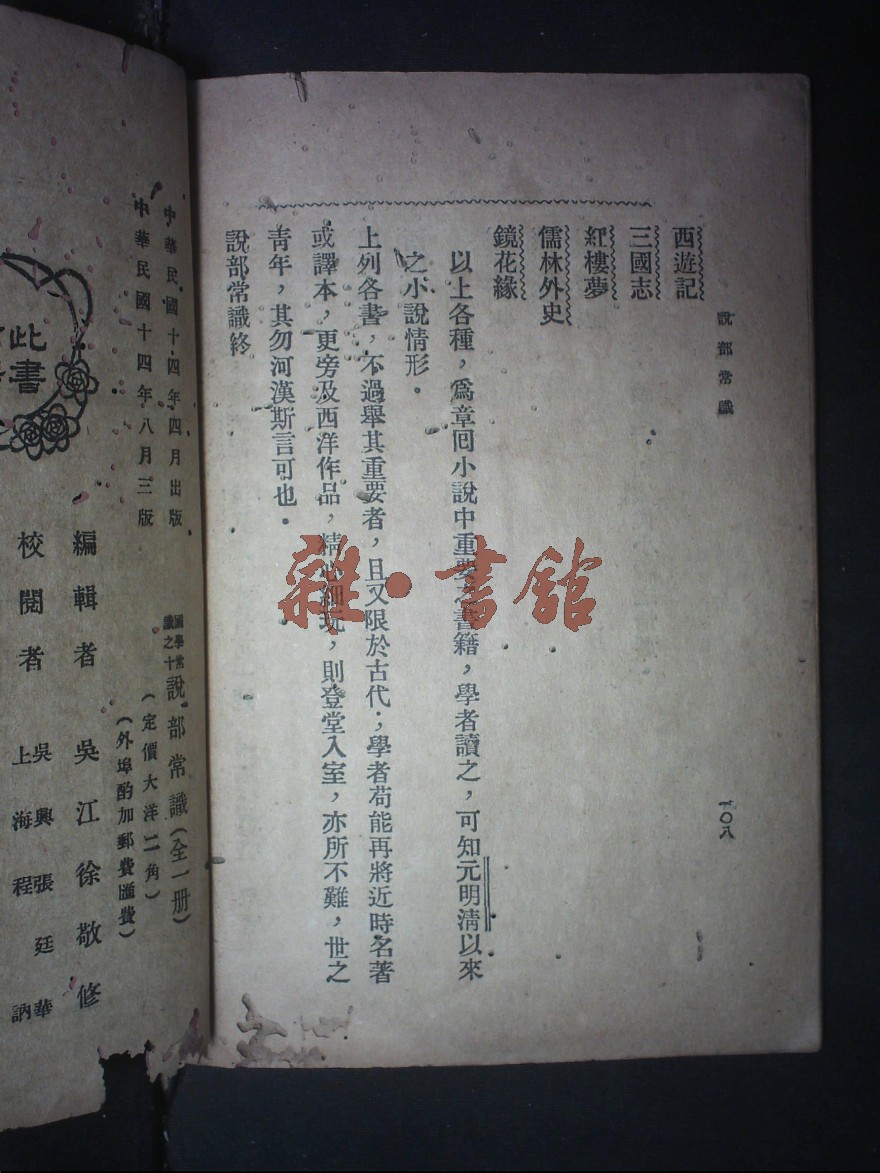 說部常識
一〇八
西遊記
三國志
紅樓夢
儒林外史
鏡花緣
以上各種，爲章回小說中重要之書籍，學者讀之，可知元明清以來
之小說情形．
上列各書，不過舉其重要者，且又限於古代；學者苟能再將近時名著
或譯本，更旁及西洋作品，精心細玩，則登堂入室，亦所不難，世之
靑年，其勿河漢斯言可也．
說部常識終
雜·書館
中華民國十四年四月出版
中華民國十四年八月三版
國學常識之十
說部常識（全一册）
（定價大洋二角）
（外埠酌加郵費匯費）
編輯者 吳江徐敬修
校閱者 吳興張廷華
上海程 訥
此書